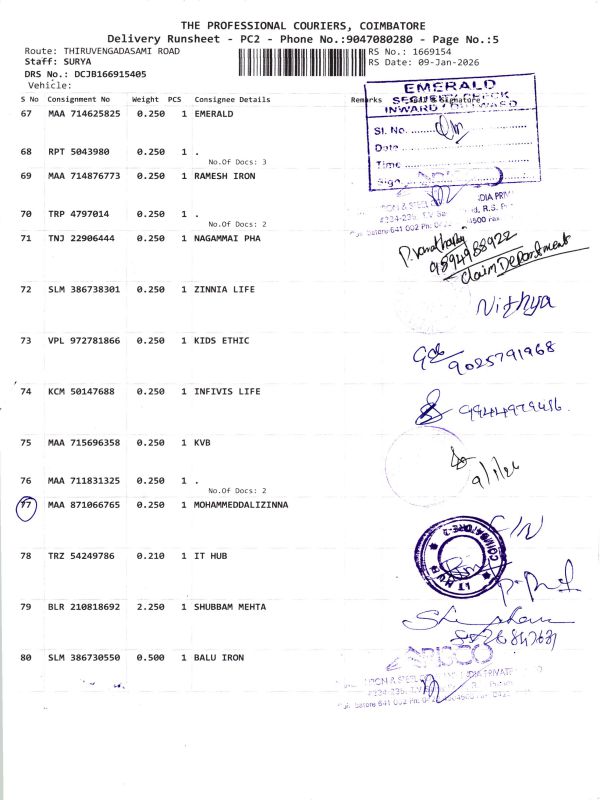 THE PROFESSIONAL COURIERS, COIMBATORE
Delivery Runsheet - PC2 - Phone No.:9047080280 - Page No.:5
Route: THIRUVENGADASAMI ROAD
RS No.: 1669154
Staff: SURYA
RS Date: 09-Jan-2026
DRS No.: DCJB166915405
Vehicle:
S No Consignment No Weight PCS Consignee Details Remarks Signature
EMERALD
SECURITY CHECK
INWARD / OUTWARD
Sl. No.
Date
Time
Sign
67 MAA 714625825 0.250 1 EMERALD
68 RPT 5043980 0.250 1 .
No.Of Docs: 3
69 MAA 714876773 0.250 1 RAMESH IRON
70 TRP 4797014 0.250 1 .
No.Of Docs: 2
71 TNJ 22906444 0.250 1 NAGAMMAI PHA
9894988922
Claim Department
72 SLM 386738301 0.250 1 ZINNIA LIFE
Nithya
73 VPL 972781866 0.250 1 KIDS ETHIC
9025791968
74 KCM 50147688 0.250 1 INFIVIS LIFE
75 MAA 715696358 0.250 1 KVB
9/1/26
76 MAA 711831325 0.250 1 .
No.Of Docs: 2
77 MAA 871066765 0.250 1 MOHAMMEDDALIZINNA
78 TRZ 54249786 0.210 1 IT HUB
IT HUB
COIMBATORE-2
79 BLR 210818692 2.250 1 SHUBBAM MEHTA
80 SLM 386730550 0.500 1 BALU IRON